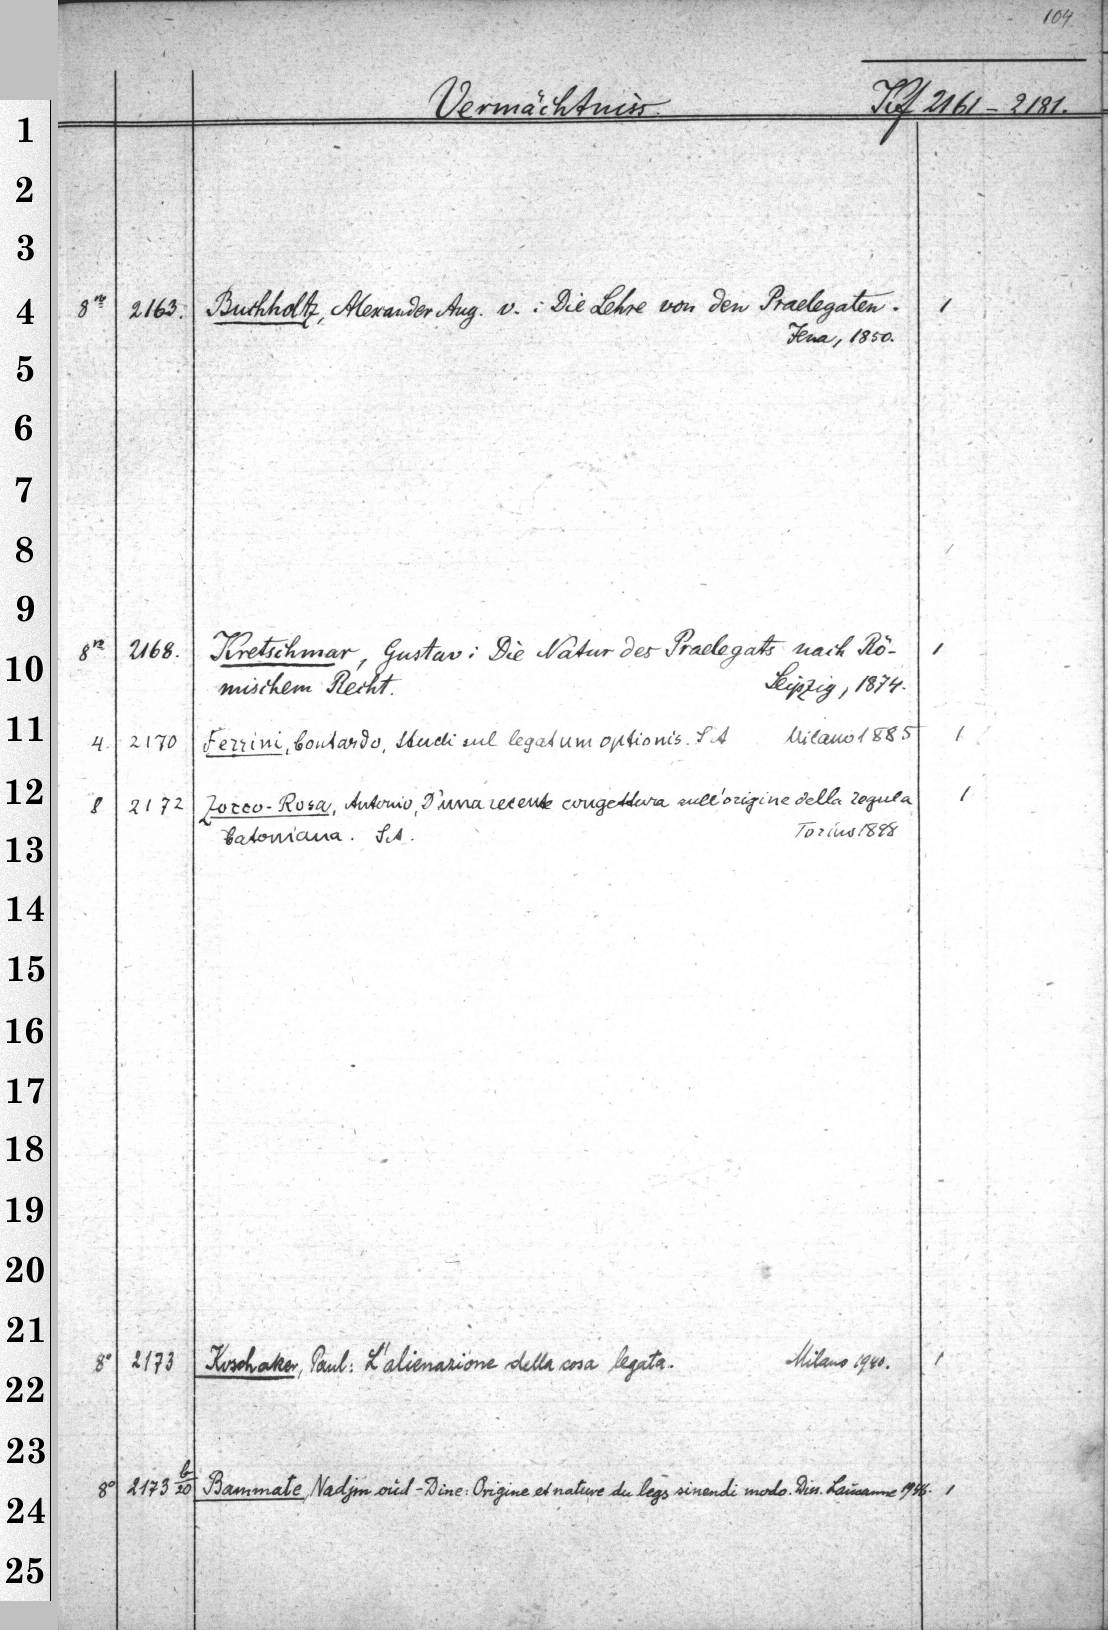 104
Vermächtniss. Kf 2161 - 2181.
1
2
3
4 8vo 2163. Buchholtz, Alexander Aug. v. : Die Lehre von den Praelegaten. 1
Jena, 1850.
5
6
7
8
9
8vo 2168. Kretschmar, Gustav: Die Natur des Praelegats nach Rö- 1
10 mischem Recht. Leipzig, 1874.
11 4. 2170 Ferrini, Contardo, Studi sul legatum optionis. S.A Milano 1885 1
12 8 2172 Zocco-Rosa, Antonio, D'una recente congettura sull'origine della regula 1
13 Catoniana. S.A. Torino 1898
14
15
16
17
18
19
20
21
8° 2173 Koschaker, Paul: L'alienazione della cosa legata. Milano 1940. 1
22
23
8° 2173 b/20 Bammate, Nadjm oud-Dine: Origine et nature du legs sinendi modo. Diss. Lausanne 1946. 1
24
25